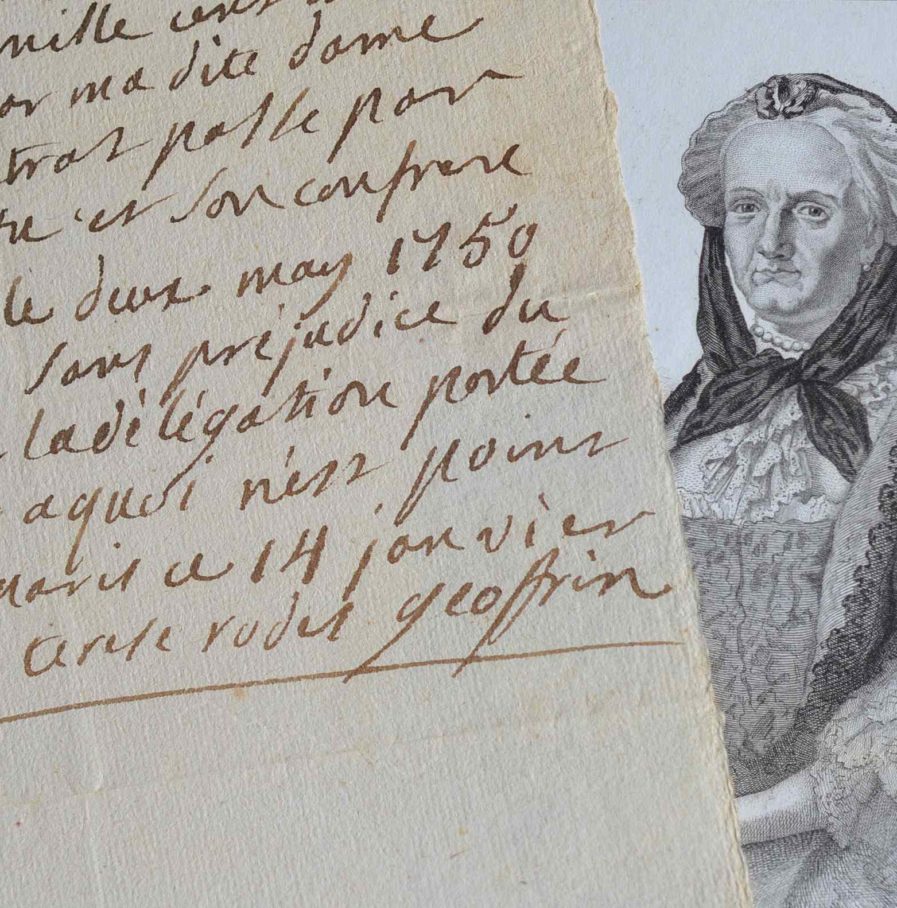 mille cens
or ma dite dame
trat passe par
et son confrere
le deux may 1750
sans préjudice du
la délégation portée
aquoi n'est point
paris ce 14 janvier
terese rodet geoffrin